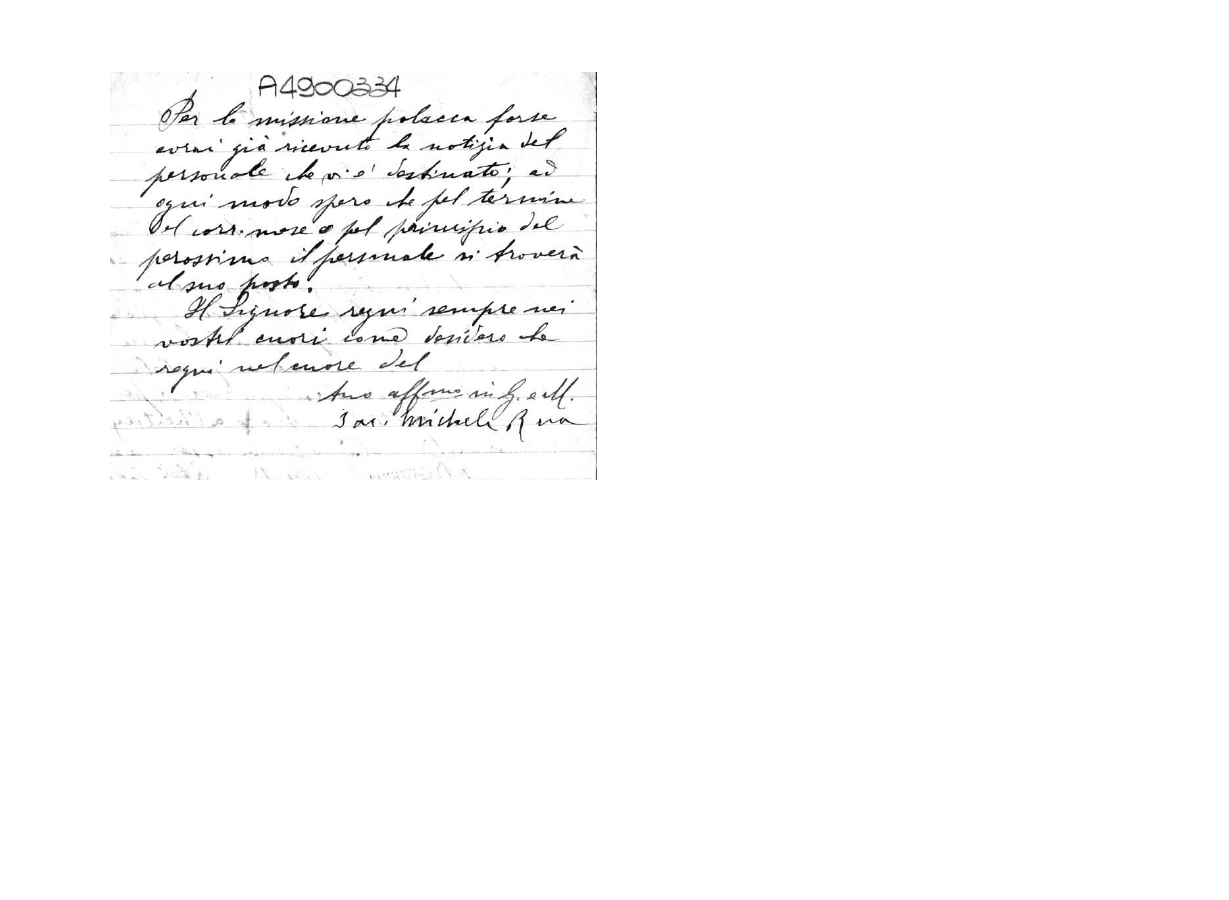 A4900334
Per la missione polacca forse
avrai già ricevuto la notizia del
personale che vi è destinato; ad
ogni modo spero che pel termine
del corr. mese o pel principio del
perossimo il personale si troverà
al suo posto.
Il Signore regni sempre nei
vostri cuori come desidero che
regni nel cuore del
tuo affmo in G. e M.
Sac. Michele Rua